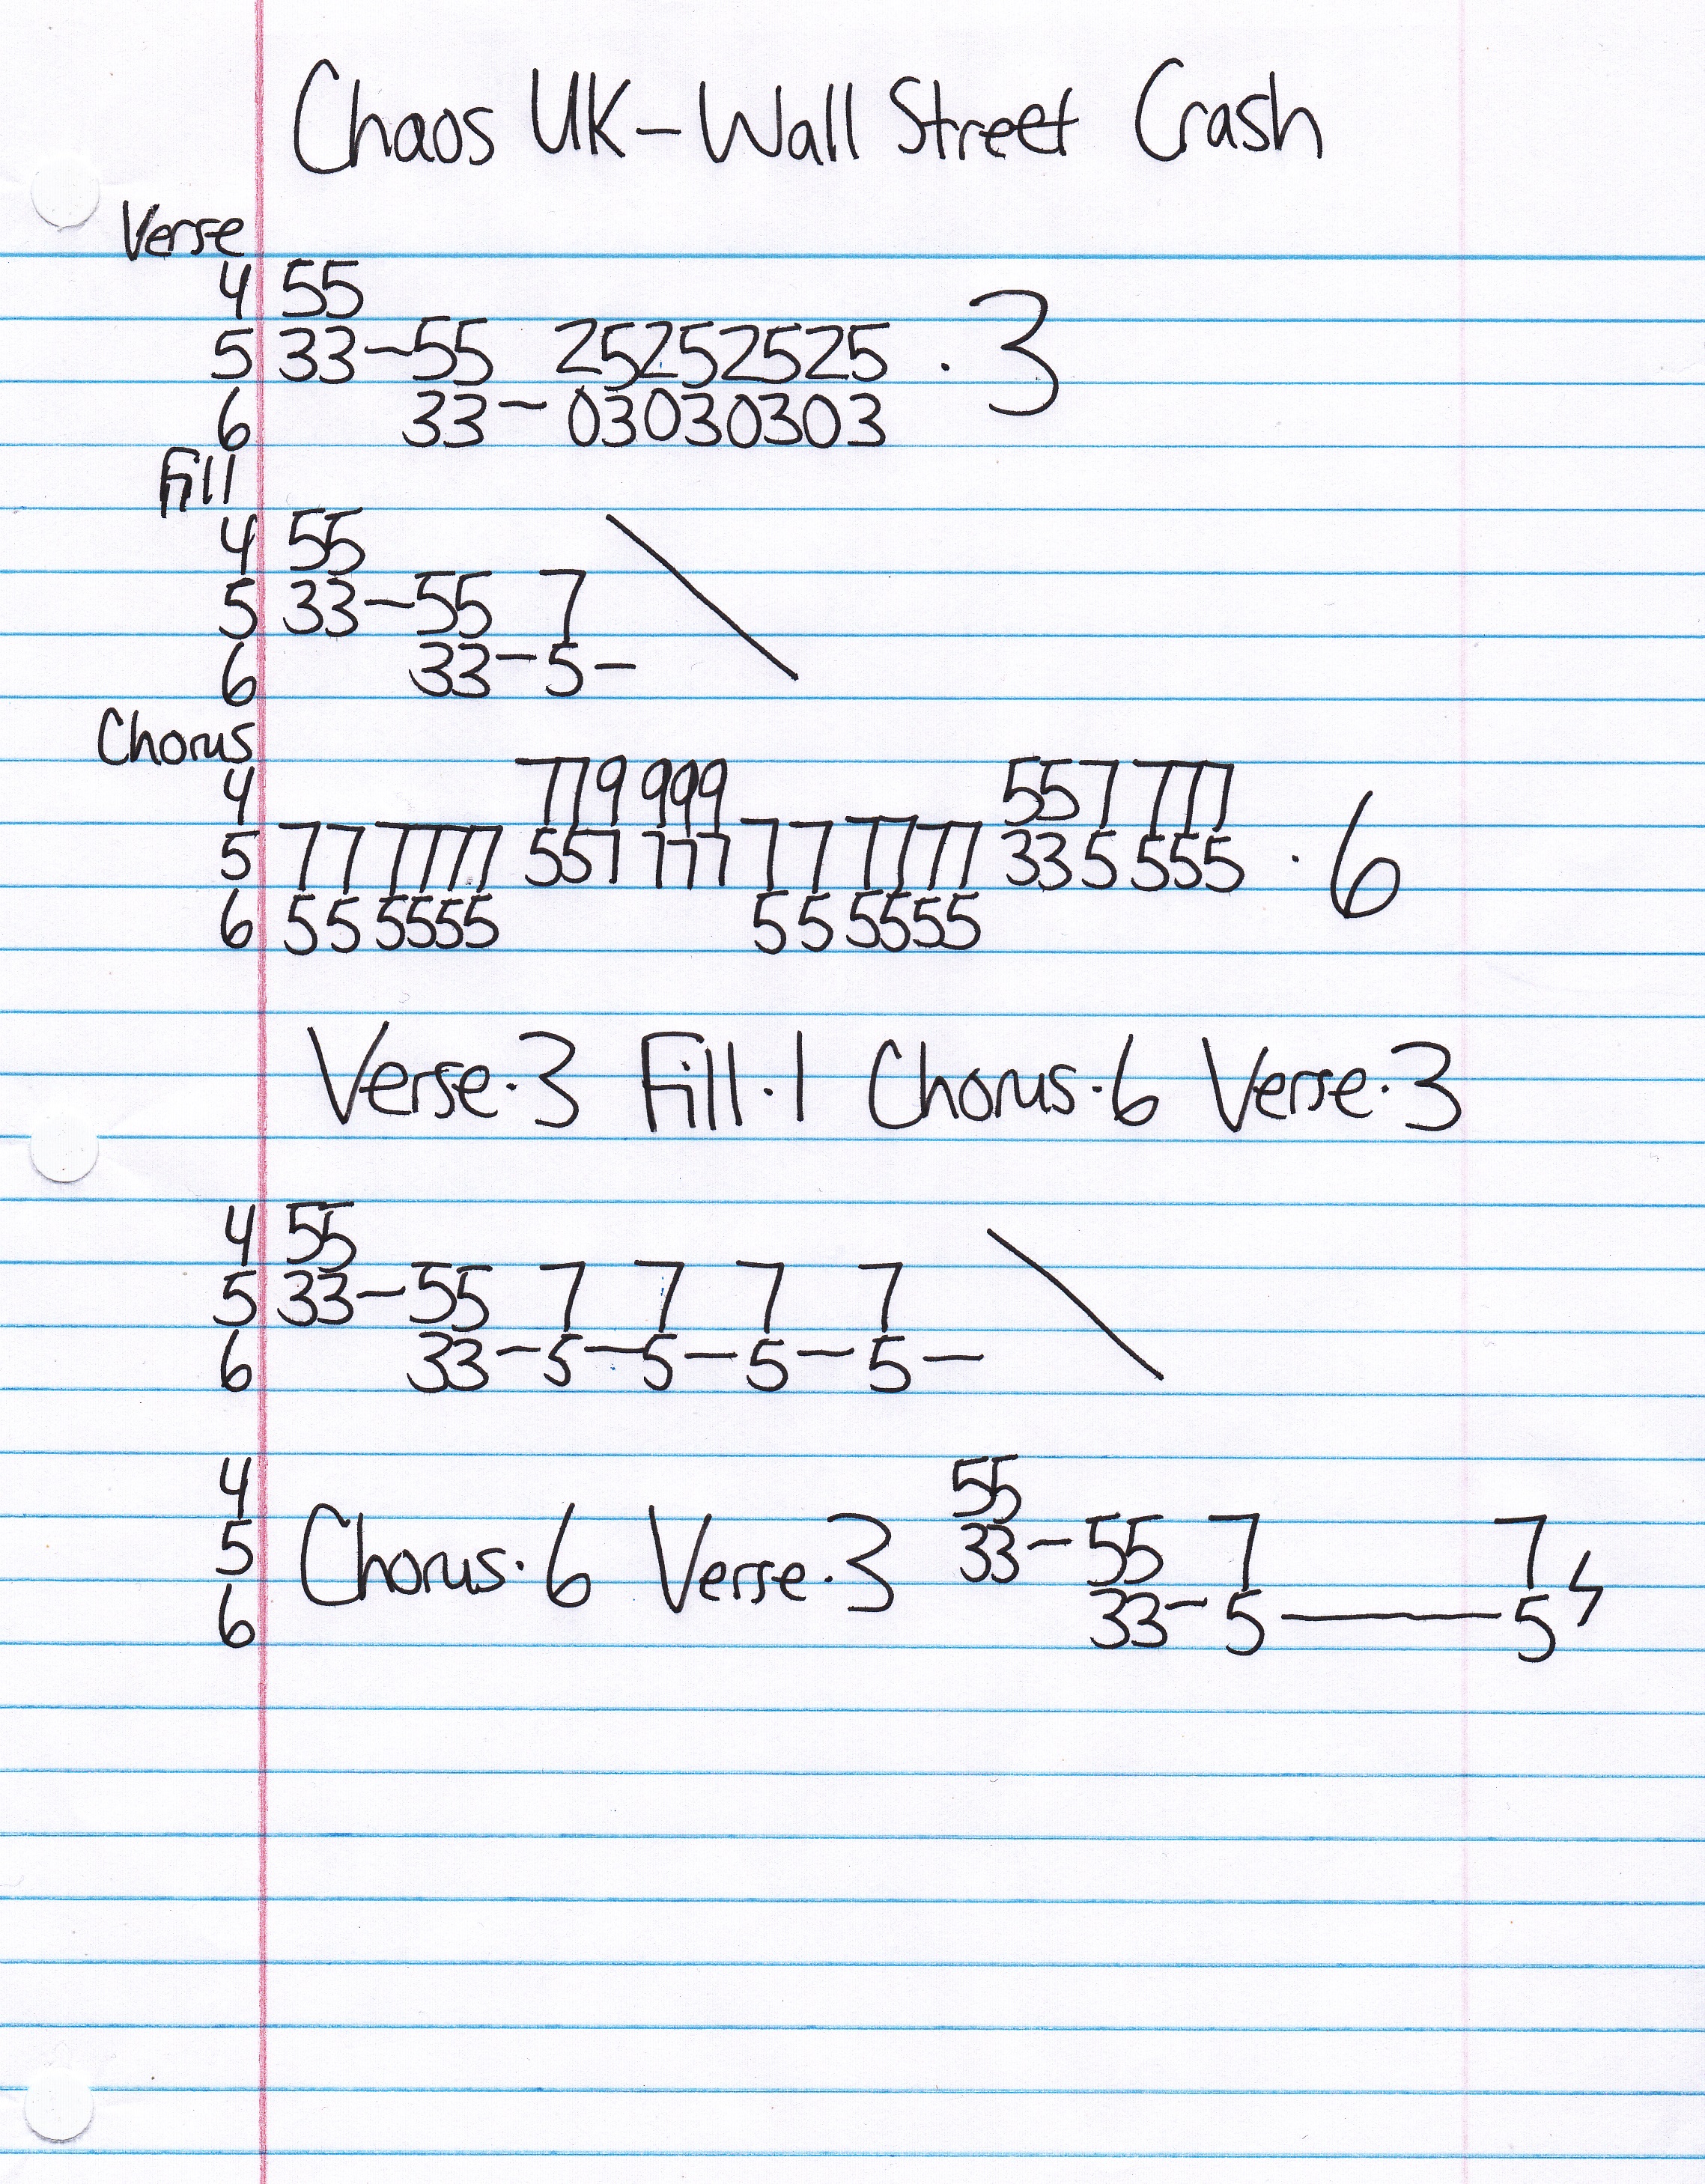 Chaos UK - Wall Street Crash
Verse
4 55
5 33-55 25252525 . 3
6 33-03030303
Fill
4 55
5 33-55 7 \
6 33-5-
Chorus
4 779 999 557 777
5 77 7777 557 777 77 7777 335 555 . 6
6 55 5555 55 5555
Verse.3 Fill.1 Chorus.6 Verse.3
4 55
5 33-55 7 7 7 7 \
6 33-5-5-5-5-
4 55
5 Chorus.6 Verse.3 33-55 7 7
6 33-5-5